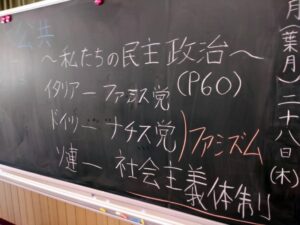 公共
～私たちの民主政治～
イタリアー ファシズム党 (P60)
ドイツー ナチス党 ファシズム
ソ連ー 社会主義体制
月(葉月)二十八日(木)